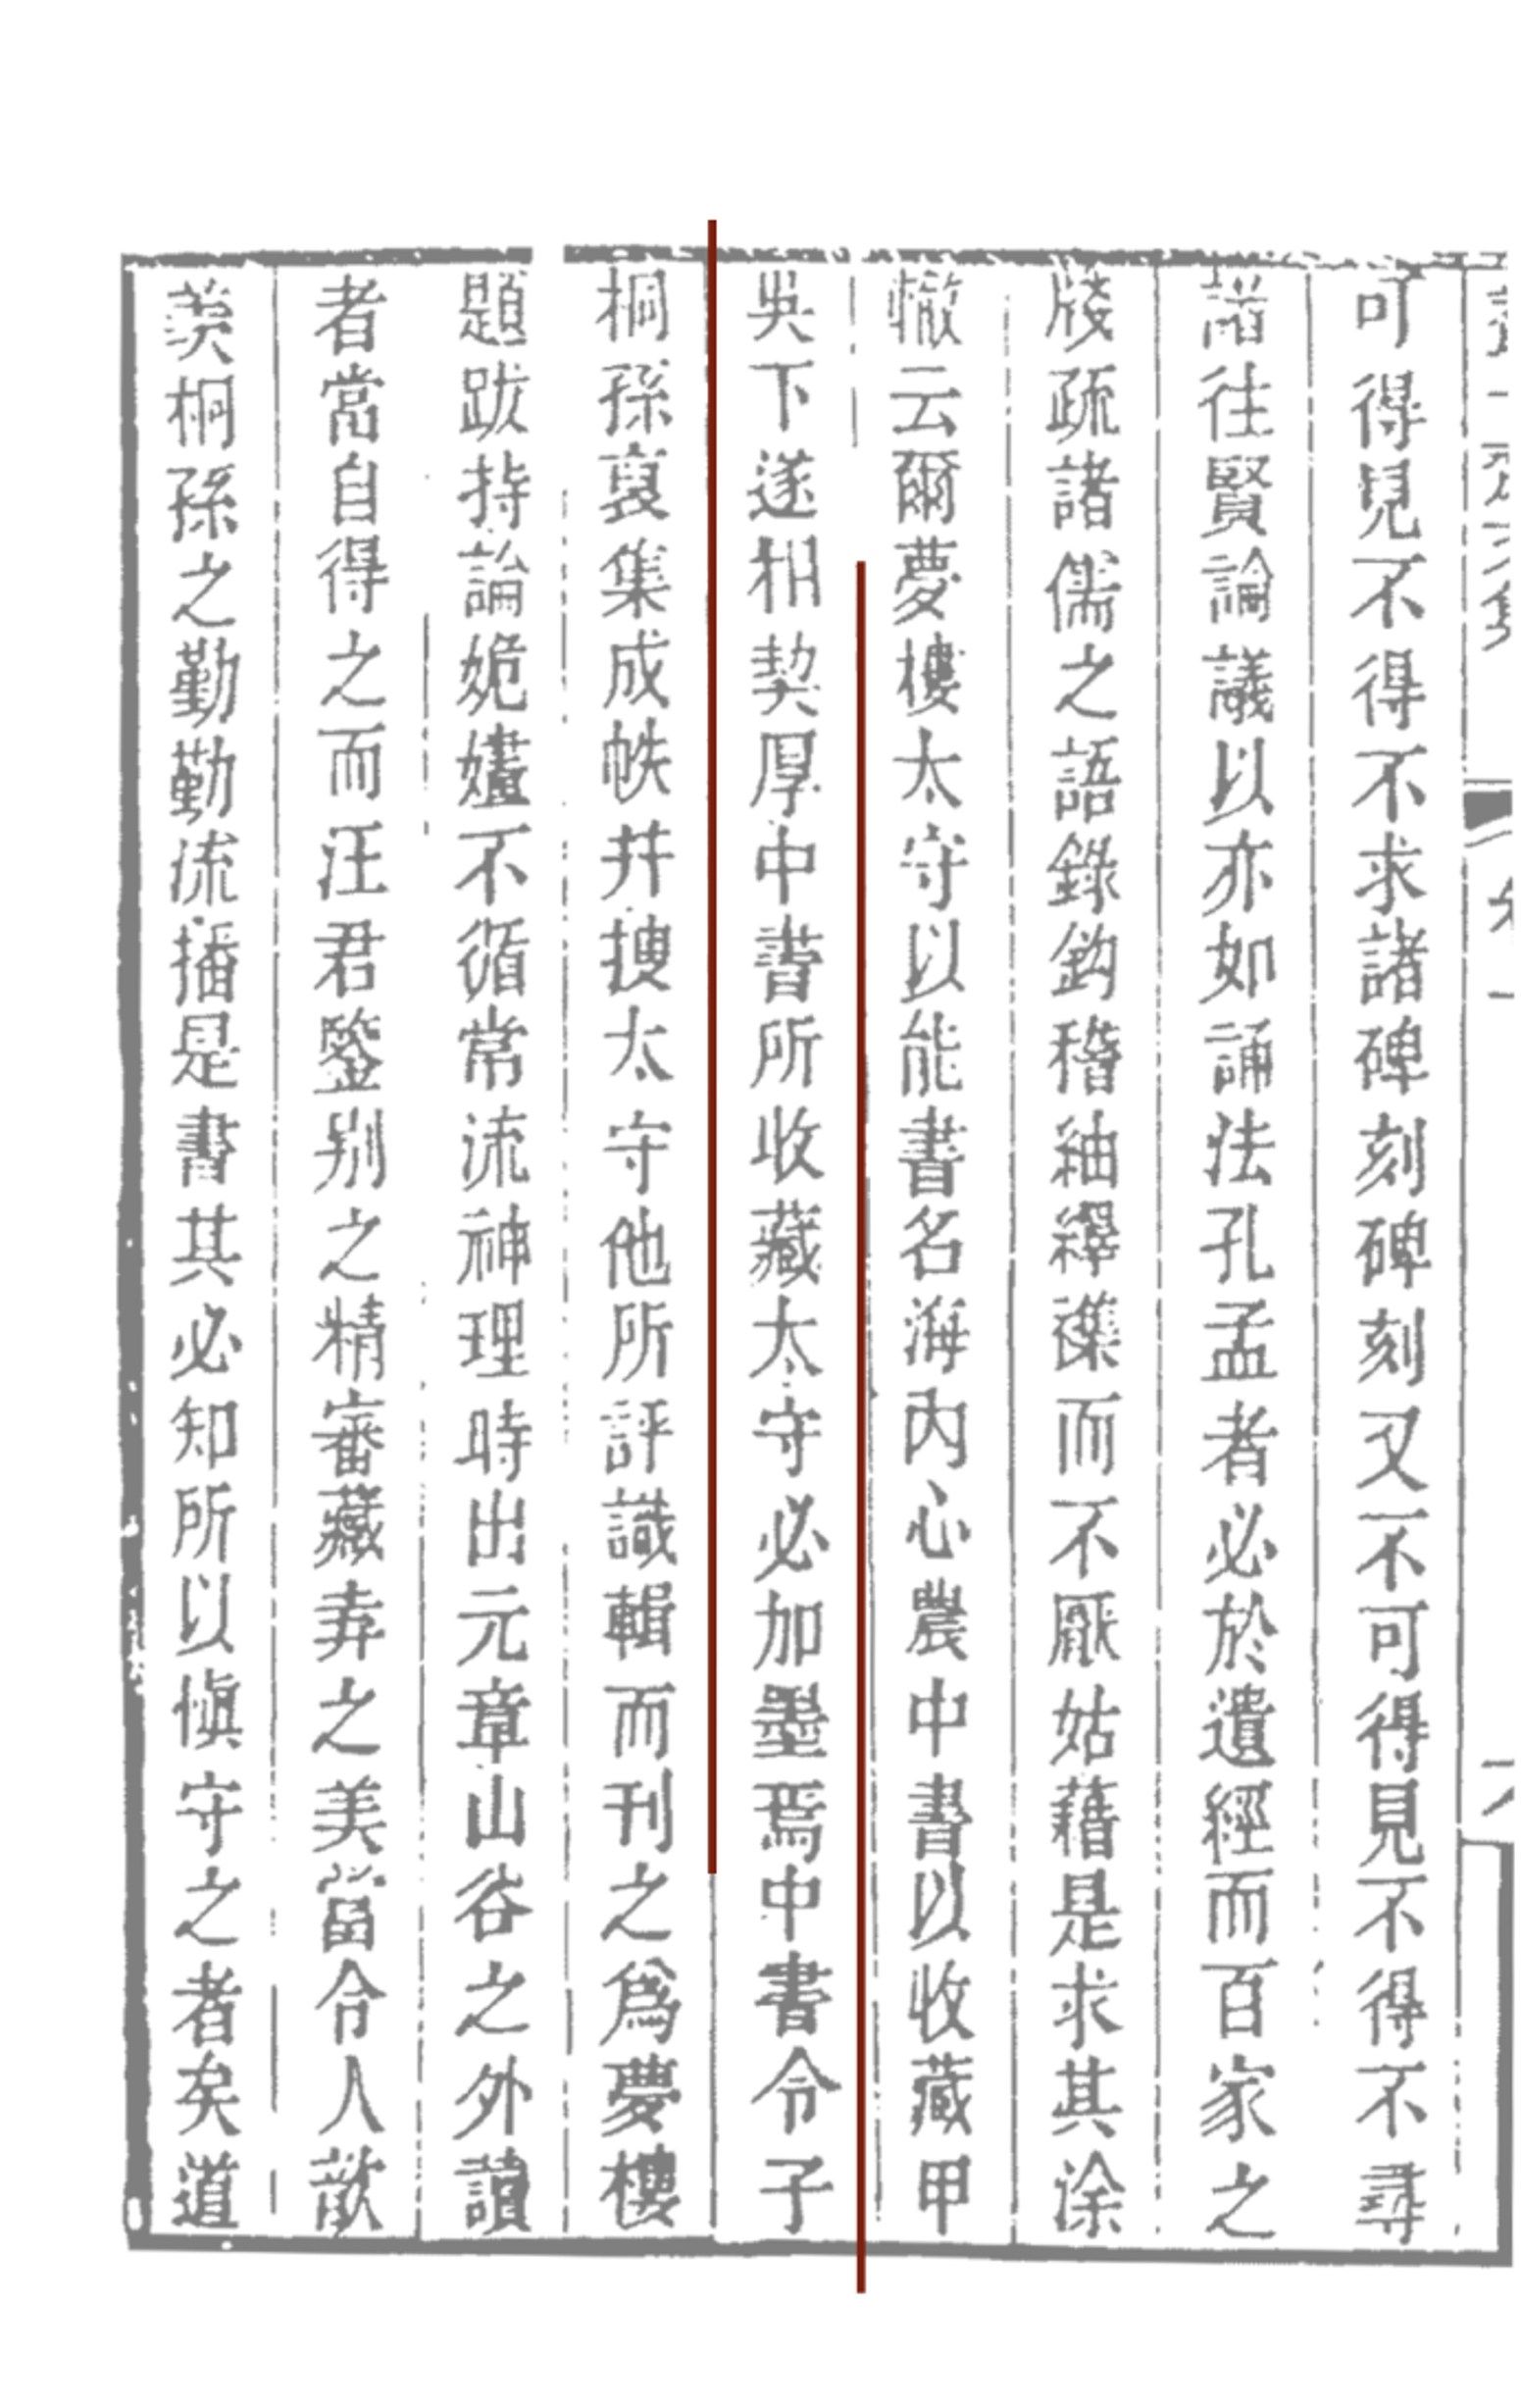 可得見不得不求諸碑刻碑刻又不可得見不得不尋
諸往賢論議以亦如誦法孔孟者必於遺經而百家之
牋疏諸儒之語錄鈎稽紬繹襍而不厭姑藉是求其涂
轍云爾夢樓太守以能書名海内心農中書以收藏甲
吳下遂相契厚中書所收藏太守必加墨焉中書令子
桐孫裒集成帙并捜太守他所評識輯而刊之爲夢樓
題跋持論娓嫿不循常流神理時出元章山谷之外讀
者當自得之而汪君鑒别之精審藏弆之美當令人歆
羨桐孫之勤勤流播是書其必知所以愼守之者矣道